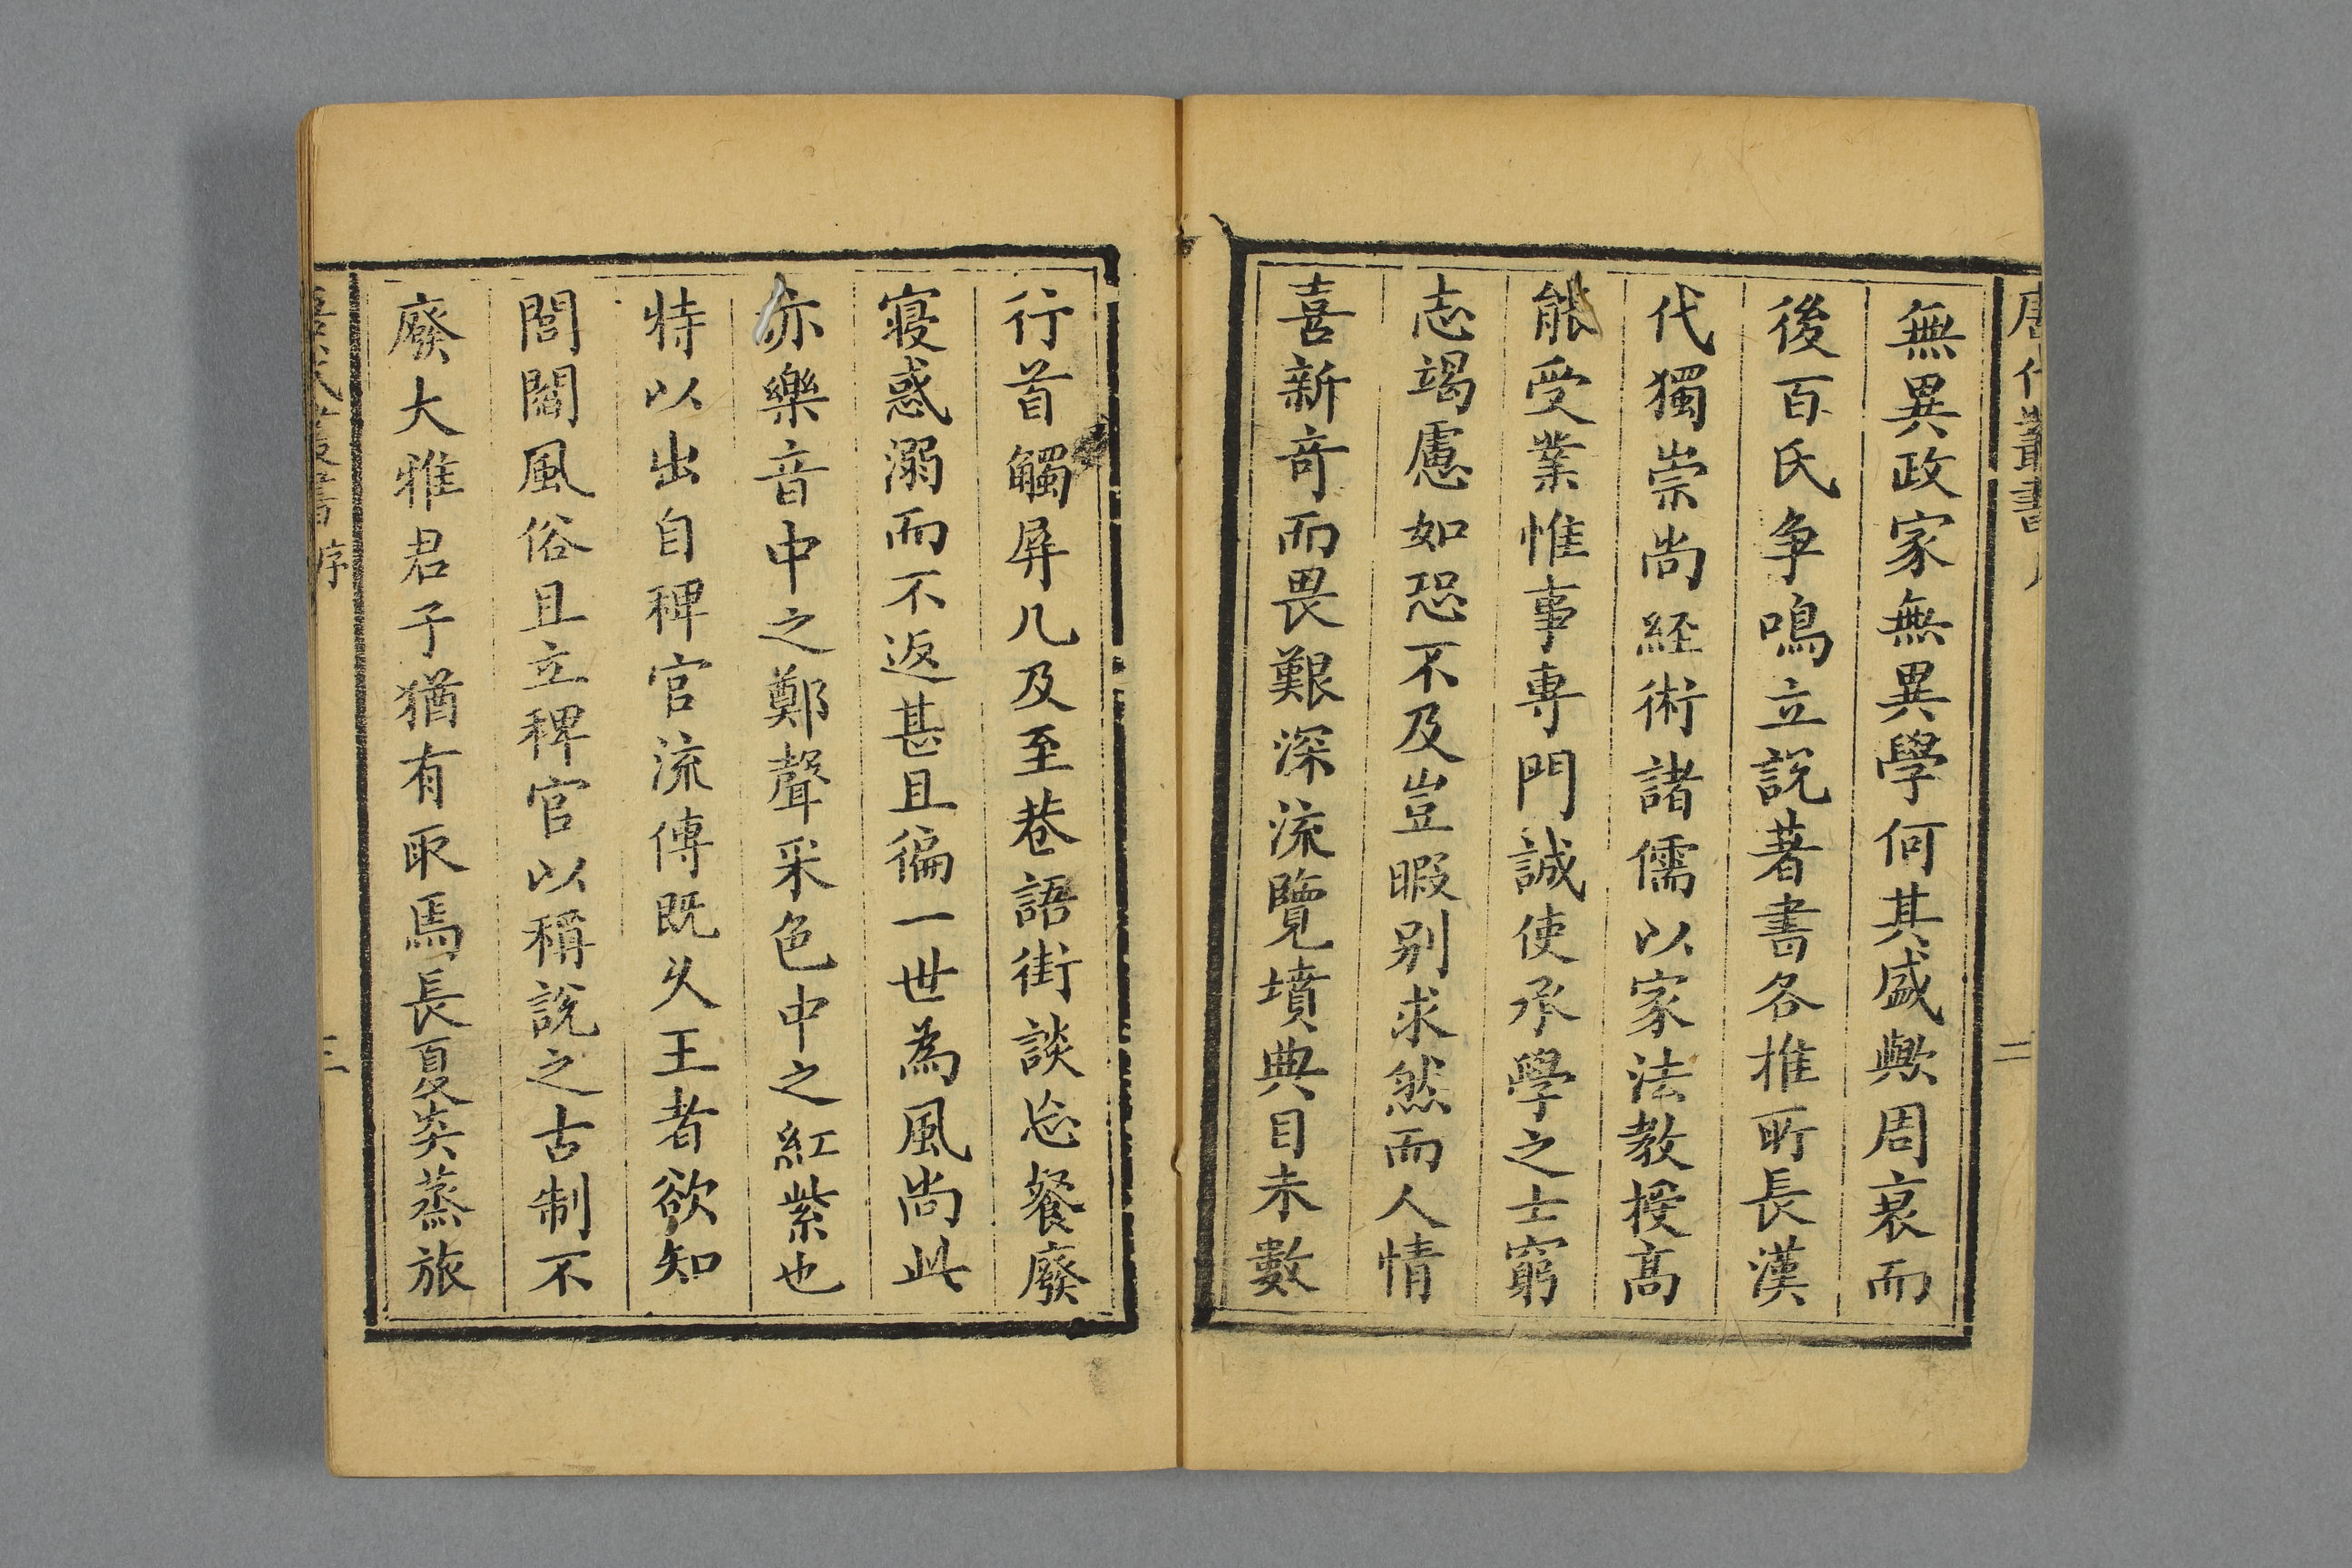 唐代叢書
二
無異政家無異學何其盛歟周衰而
後百氏争鳴立說著書各推所長漢
代獨崇尚經術諸儒以家法教授髙
能受業惟事專門誠使承學之士窮
志竭慮如恐不及豈暇别求然而人情
喜新竒而畏艱深流覽墳典目未數
行首觸屏几及至巷語街談忘餐廢
寢惑溺而不返甚且徧一世為風尚此
亦樂音中之鄭聲采色中之紅紫也
特以出自稗官流傳既久王者欲知
閭閻風俗且立稗官以稱說之古制不
廢大雅君子猶有取焉長夏炎蒸旅
序
三